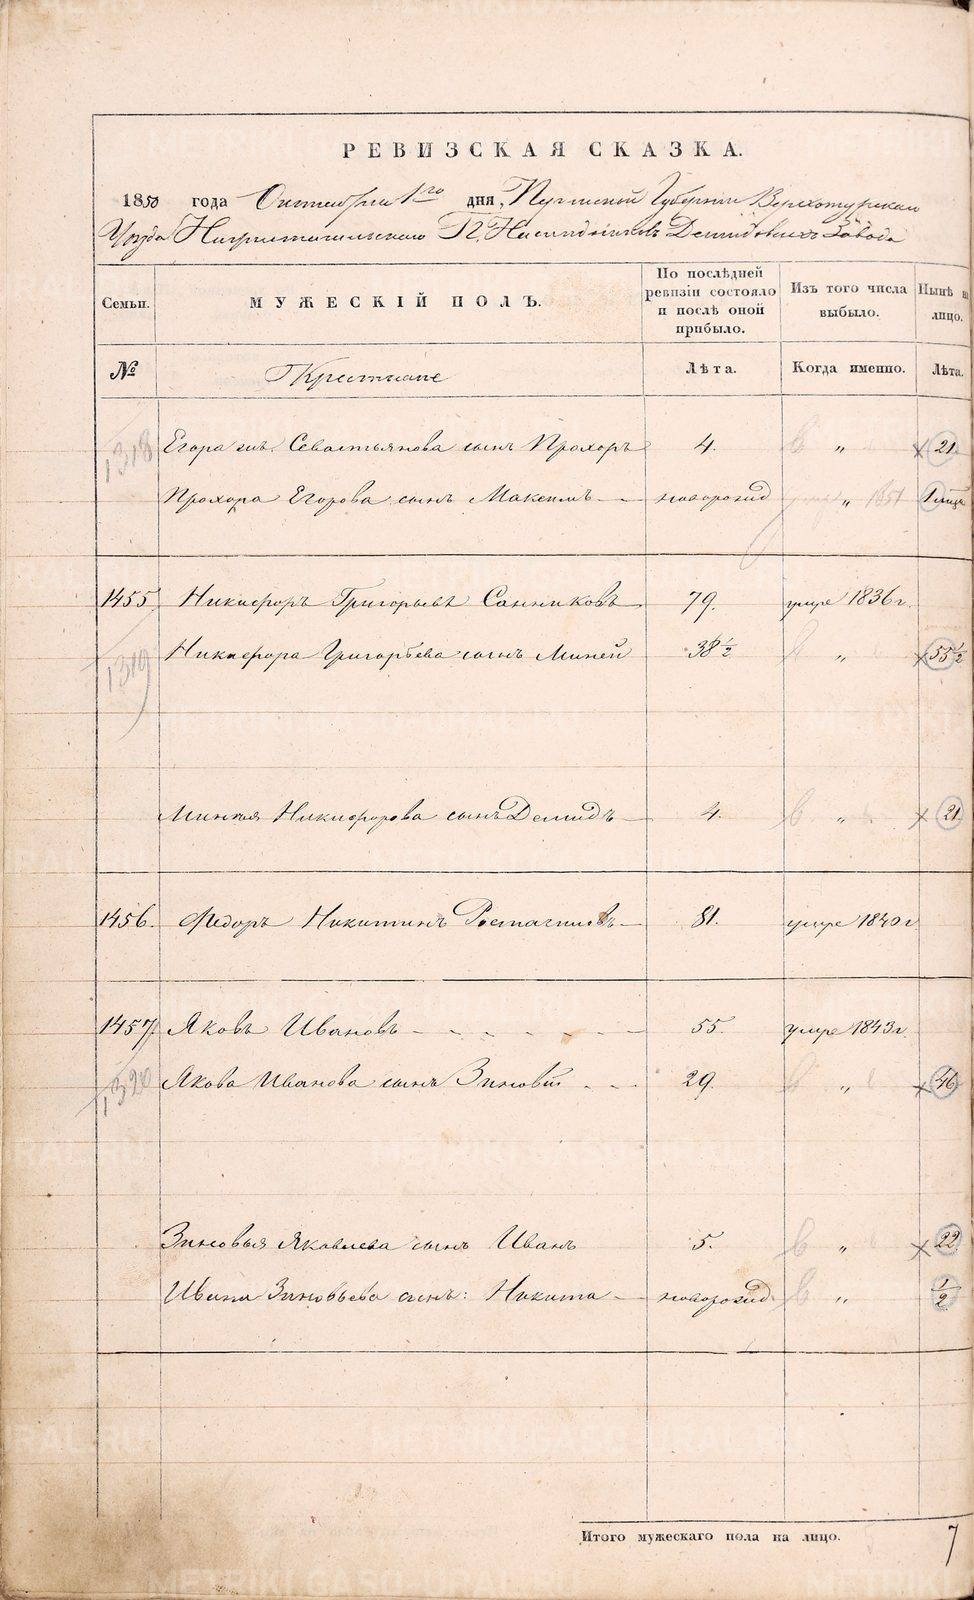 РЕВИЗСКАЯ СКАЗКА.
1850 года Октября 1го дня, Пермской Губернии Верхотурскаго
Уезда Нижнетагильскаго Гг. Наследниковъ Демидовыхъ Завода
Семьи. МУЖЕСКІЙ ПОЛЪ. По послѣдней ревизіи состояло и послѣ оной прибыло. Изъ того числа выбыло. Нынѣ на лицо.
№ Крестьяне Лѣта. Когда именно. Лѣта.
1318 Егора Севастьянова сынъ Прохоръ 4. " 21
Прохора Егорова сынъ Максимъ новорожд " 1851 1 мѣць
1455 Никифоръ Григорьевъ Санниковъ 79. умре 1836 г.
1319 Никифора Григорьева сынъ Миней 38 1/2 " 55 1/2
Минея Никифорова сынъ Демидъ 4. " 21
1456. Федоръ Никитинъ 81. умре 1840 г
1457. Яковъ Ивановъ 55. умре 1843 г.
1320 Якова Иванова сынъ Зиновій 29. " 46
Зиновья Яковлева сынъ Иванъ 5. " 22
Ивана Зиновьева сынъ: Никита новорожд. " 1/2
Итого мужескаго пола на лицо. 7
METRIKI.GASO-URAL.RU